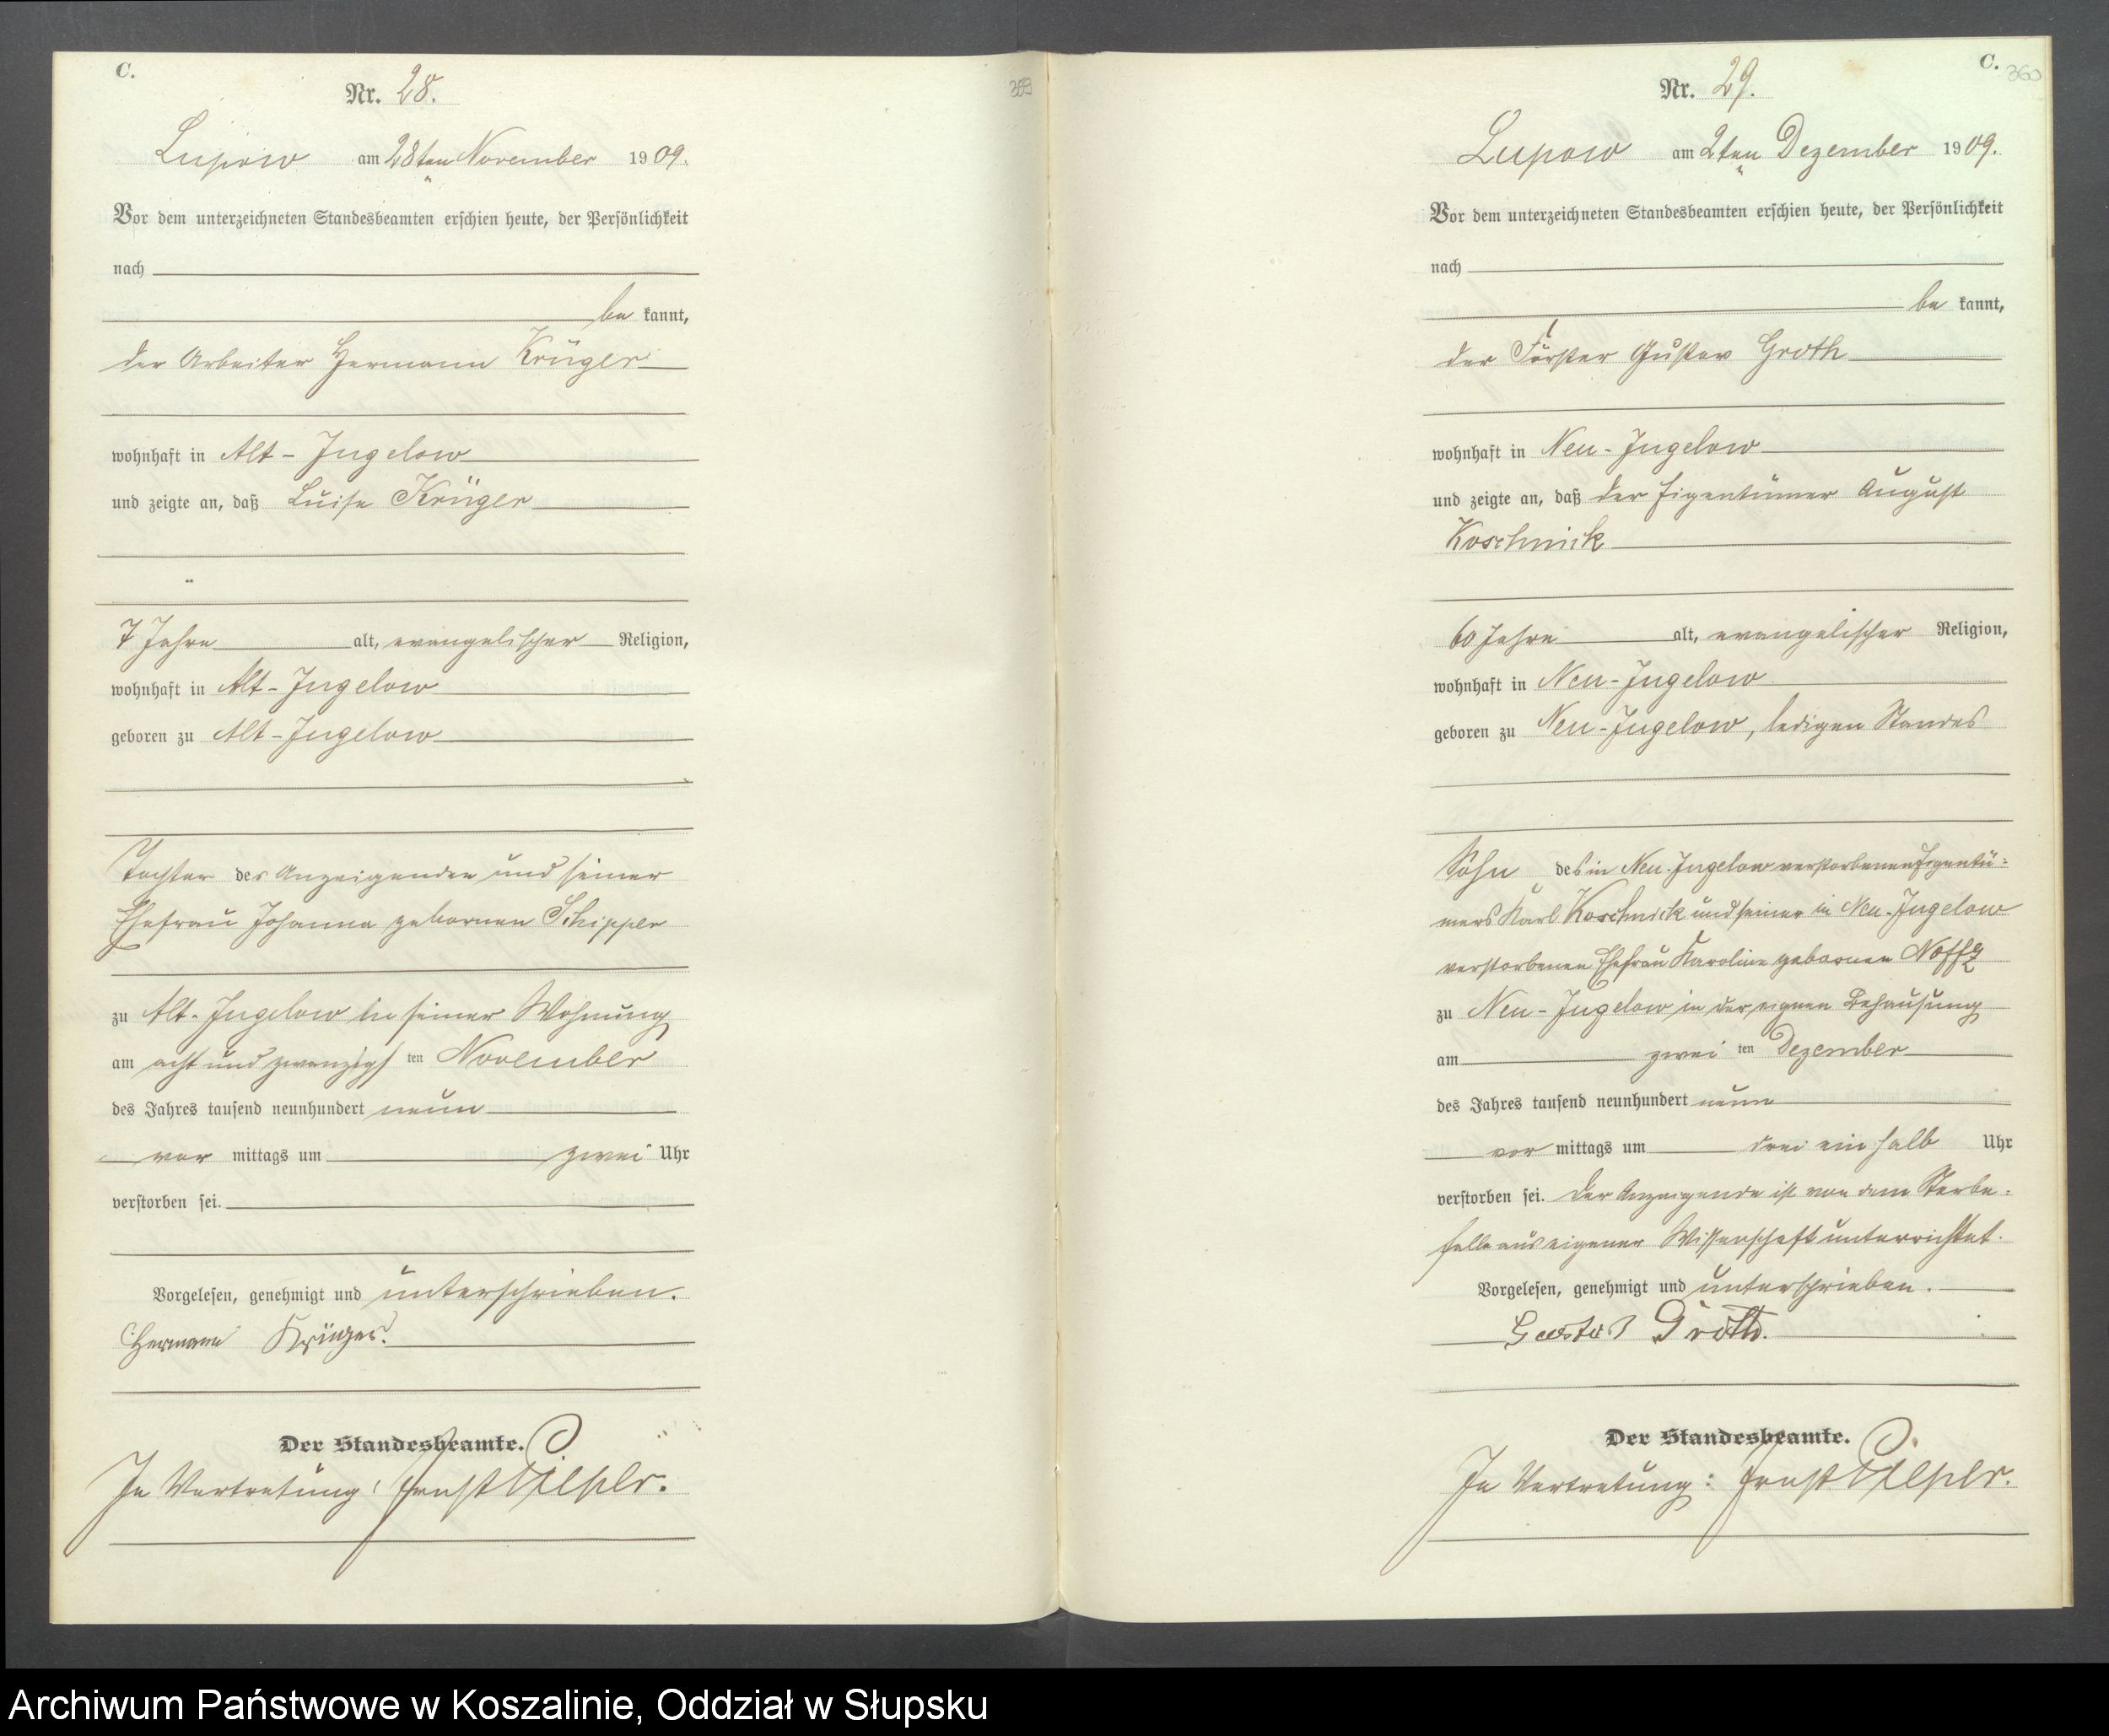 C.
Nr. 28.
Lupow am 28ten November 1909.
Vor dem unterzeichneten Standesbeamten erschien heute, der Persönlichkeit
nach
be kannt,
der Arbeiter Hermann Krüger
wohnhaft in Alt-Jugelow
und zeigte an, daß Luise Krüger
7 Jahre alt, evangelischer Religion,
wohnhaft in Alt-Jugelow
geboren zu Alt-Jugelow
Tochter des Anzeigenden und seiner
Ehefrau Johanna gebornen Schipper
zu Alt-Jugelow in seiner Wohnung
am acht und zwanzigsten November
des Jahres tausend neunhundert neun
vor mittags um zwei Uhr
verstorben sei.
Vorgelesen, genehmigt und unterschrieben.
Hermann Krüger.
Der Standesbeamte.
In Vertretung: Ernst
359
C. 360
Nr. 29.
Lupow am 2ten Dezember 1909.
Vor dem unterzeichneten Standesbeamten erschien heute, der Persönlichkeit
nach
be kannt,
der Förster Gustav Groth
wohnhaft in Neu-Jugelow
und zeigte an, daß der Eigentümer August
Koschnick
60 Jahre alt, evangelischer Religion,
wohnhaft in Neu-Jugelow
geboren zu Neu-Jugelow, ledigen Standes
Sohn des in Neu-Jugelow verstorbenen Eigentü=
mers Karl Koschnick und seiner in Neu-Jugelow
verstorbenen Ehefrau Karoline gebornen Noffz
zu Neu-Jugelow in der eignen Behausung
am zwei ten Dezember
des Jahres tausend neunhundert neun
vor mittags um drei ein halb Uhr
verstorben sei. Der Anzeigende ist von dem Sterbe=
falle aus eigener Wissenschaft unterrichtet.
Vorgelesen, genehmigt und unterschrieben.
Gustav Groth.
Der Standesbeamte.
In Vertretung: Ernst
Archiwum Państwowe w Koszalinie, Oddział w Słupsku